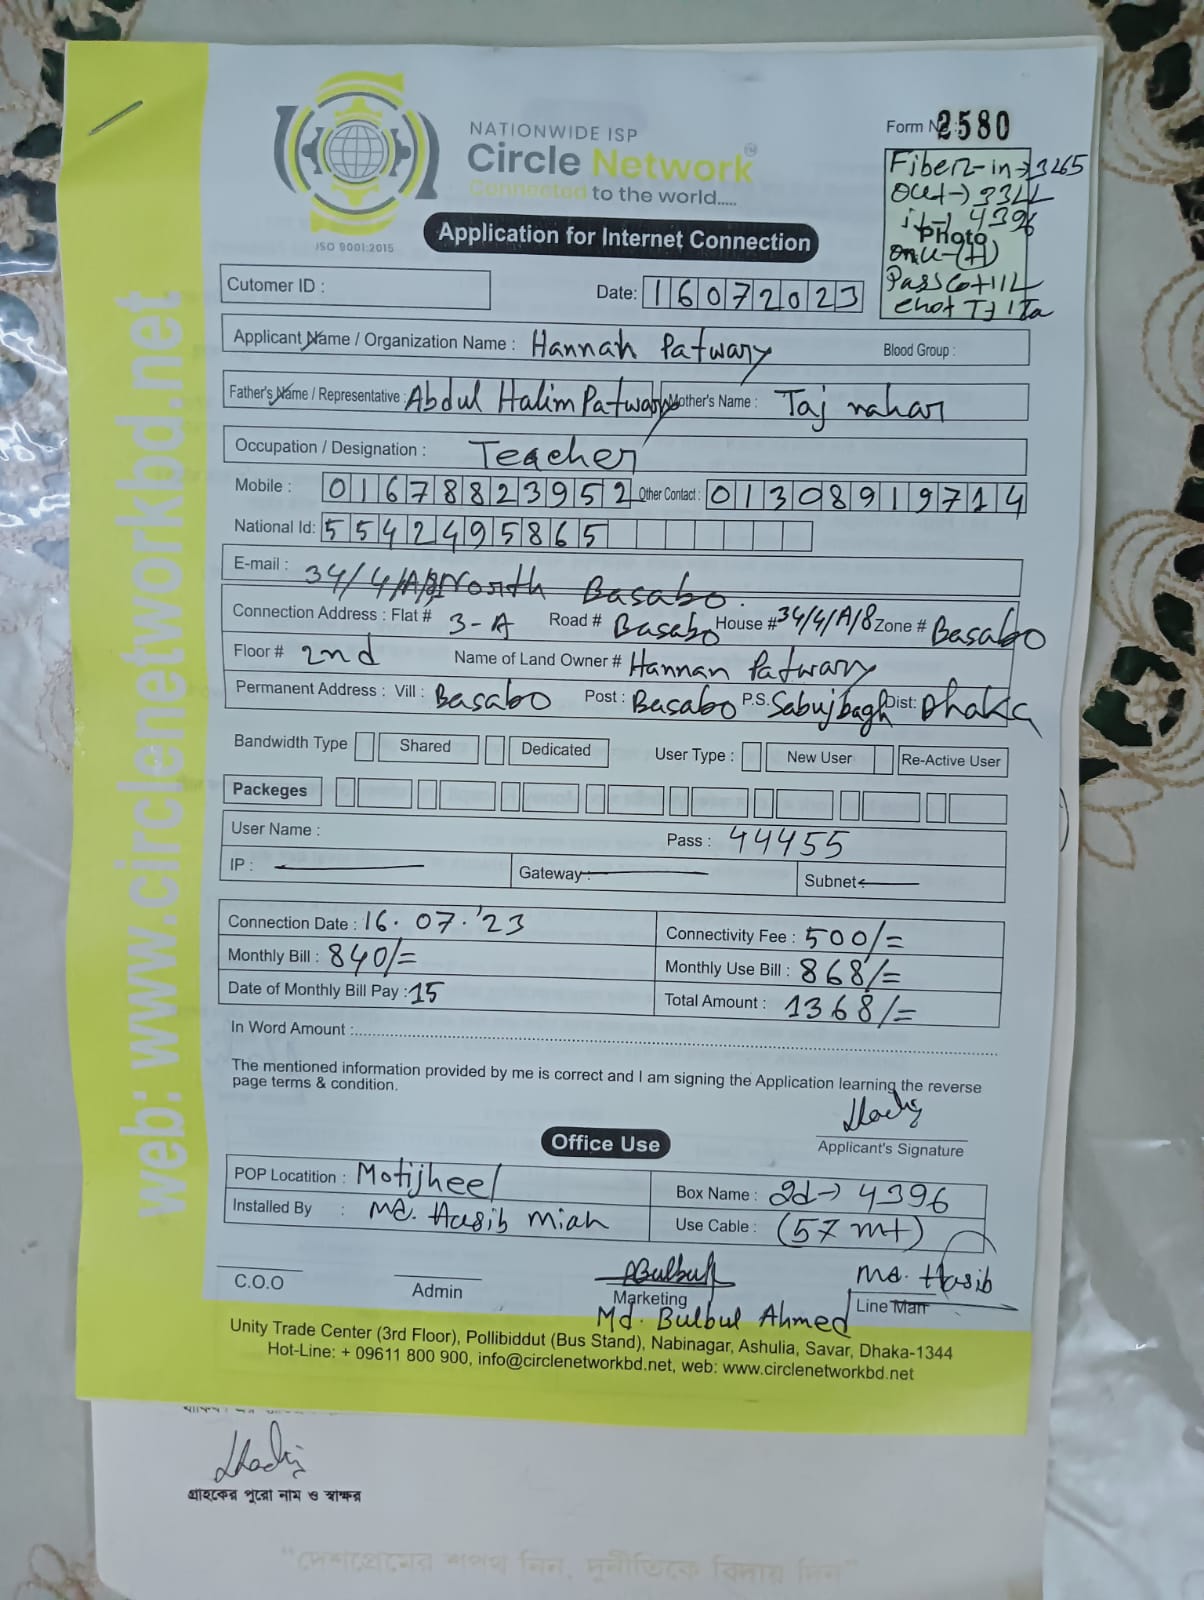 NATIONWIDE ISP
Circle Network™
Connected to the world.....
ISO 9001:2015
Form No. 2580
Fiber-in→3265
Out→
4396
photo
onu-(H)
Application for Internet Connection
Cutomer ID :
Date: 16072023
Applicant Name / Organization Name : Hannan Patwary Blood Group :
Father's Name / Representative : Abdul Halim Patwary Mother's Name : Taj nahar
Occupation / Designation : Teacher
Mobile : 01678823952 Other Contact : 01308919714
National Id: 5542495865
E-mail : 34/4/A/8 North Basabo.
Connection Address : Flat # 3-A Road # Basabo House # 34/4/A/8 Zone # Basabo
Floor # 2nd Name of Land Owner # Hannan Patwary
Permanent Address : Vill : Basabo Post : Basabo P.S. Sabujbagh Dist: Dhaka
Bandwidth Type Shared Dedicated User Type : New User Re-Active User
Packeges
User Name : Pass : 44455
IP : Gateway: Subnet:
Connection Date : 16. 07. '23 Connectivity Fee : 500/=
Monthly Bill : 840/= Monthly Use Bill : 868/=
Date of Monthly Bill Pay : 15 Total Amount : 1368/=
In Word Amount :
The mentioned information provided by me is correct and I am signing the Application learning the reverse
page terms & condition.
Applicant's Signature
Office Use
POP Locatition : Motijheel Box Name : 2d→ 4396
Installed By : Md. Hasib Miah Use Cable : (57 mt)
C.O.O Admin Bulbul Marketing Md. Hasib Line Man
Md. Bulbul Ahmed
Unity Trade Center (3rd Floor), Pollibiddut (Bus Stand), Nabinagar, Ashulia, Savar, Dhaka-1344
Hot-Line: + 09611 800 900, info@circlenetworkbd.net, web: www.circlenetworkbd.net
web: www.circlenetworkbd.net
গ্রাহকের পুরো নাম ও স্বাক্ষর
"দেশপ্রেমের শপথ নিন, দুর্নীতিকে বিদায় দিন"